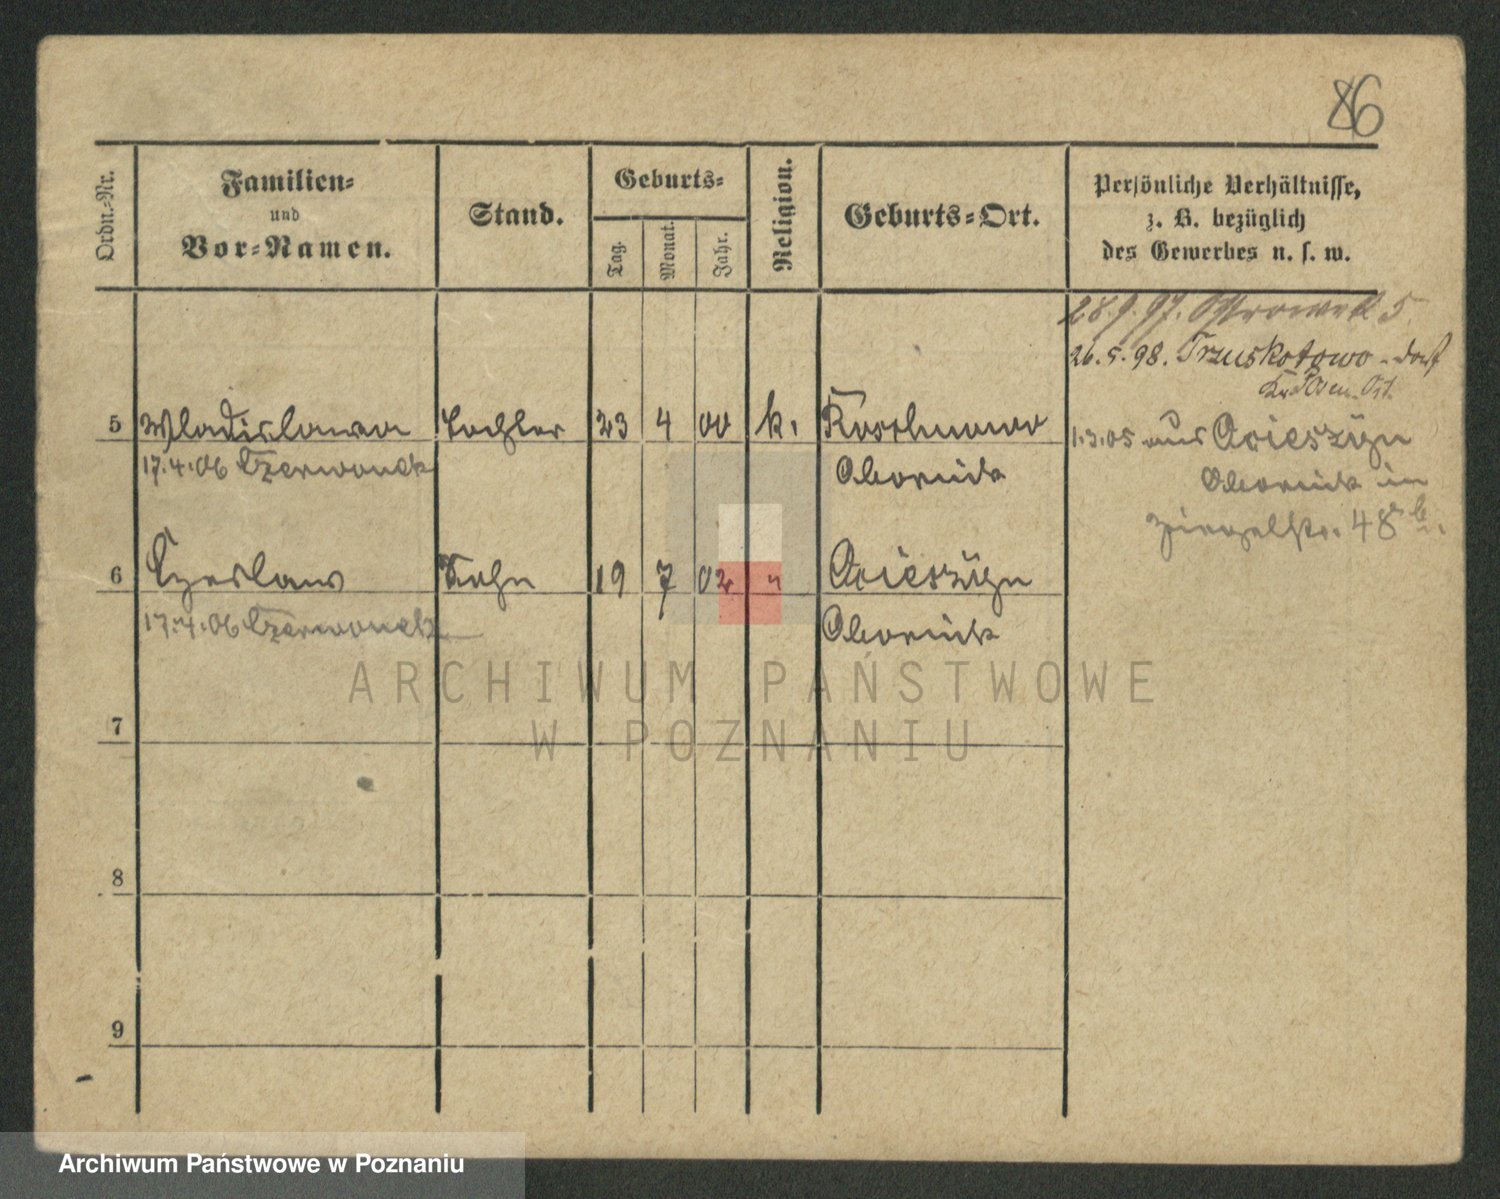 86
Ordn.-Nr.
Familien-
und
Vor-Namen.
Stand.
Geburts-
Tag.
Monat.
Jahr.
Religion.
Geburts-Ort.
Persönliche Verhältnisse,
z. B. bezüglich
des Gewerbes u. s. w.
28.9.97. 5
26.5.98. Trzuskotowo - Dorf
Kr. Posen Ost.
5 Wladislawa Tochter 23 4 00 k.
1.3.05 aus
17.4.06 Czerwonak Obornik
Obornik in
Ziegelstr. 48
6 Czeslaw Sohn 19 7 02 "
17.4.06 Czerwonak Obornik
7
8
9
ARCHIWUM PAŃSTWOWE
W POZNANIU
Archiwum Państwowe w Poznaniu